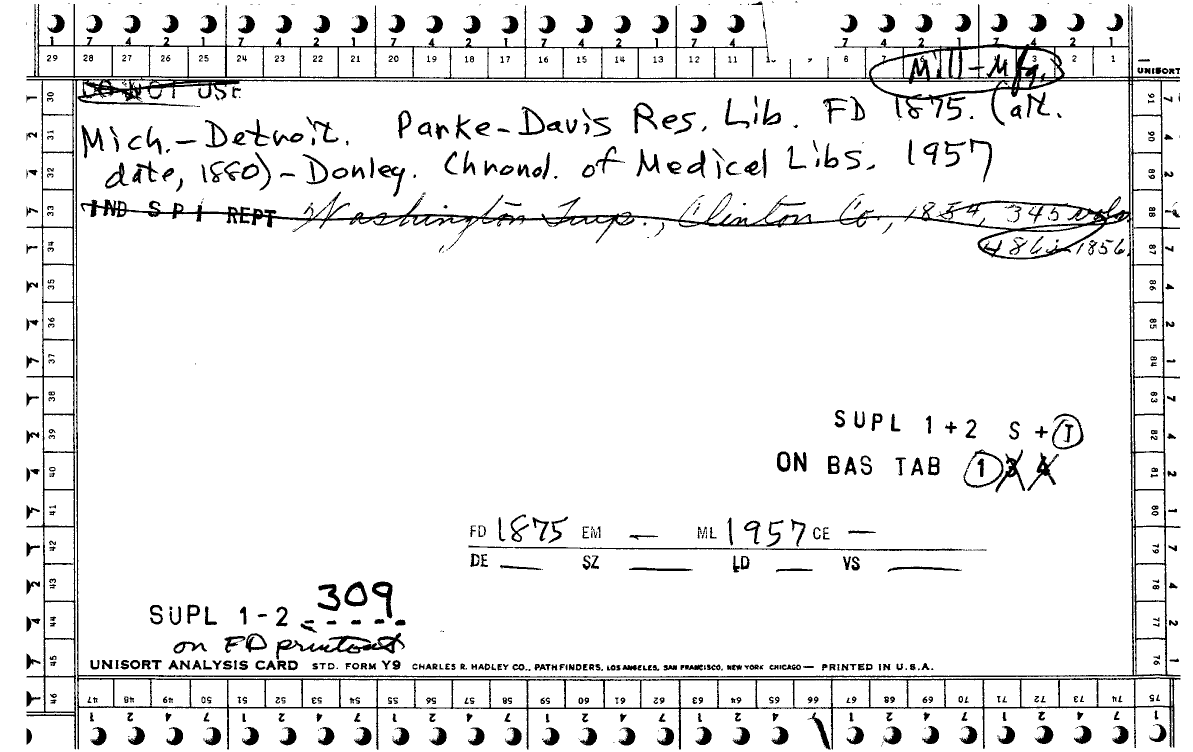 1 7 4 2 1 7 4 2 1 7 4 2 1 7 4 2 1 7 4 7 4 2 1 7 4 2 1
29 28 27 26 25 24 23 22 21 20 19 18 17 16 15 14 13 12 11 8 3 2 1
Mill-Mfg.
UNISORT
DO NOT USE
Mich.-Detroit. Parke-Davis Res. Lib. FD 1875. (alt.
date, 1880)-Donley. Chronol. of Medical Libs. 1957
IND S P I REPT Washington Twp., Clinton Co., 1854, 345 vols
486 in 1856.
SUPL 1+2 S+I
ON BAS TAB 1 3 4
FD 1875 EM — ML 1957 CE —
DE SZ LD VS
309
SUPL 1-2
on FD printout
UNISORT ANALYSIS CARD STD. FORM Y9 CHARLES R. HADLEY CO., PATHFINDERS, LOS ANGELES, SAN FRANCISCO, NEW YORK CHICAGO — PRINTED IN U.S.A.
30 31 32 33 34 35 36 37 38 39 40 41 42 43 44 45 46
91 90 89 88 87 86 85 84 83 82 81 80 79 78 77 76 75
47 48 49 50 51 52 53 54 55 56 57 58 59 60 61 62 63 64 65 66 67 68 69 70 71 72 73 74
1 2 4 7 1 2 4 7 1 2 4 7 1 2 4 7 1 2 4 1 2 4 7 1 2 4 7 1